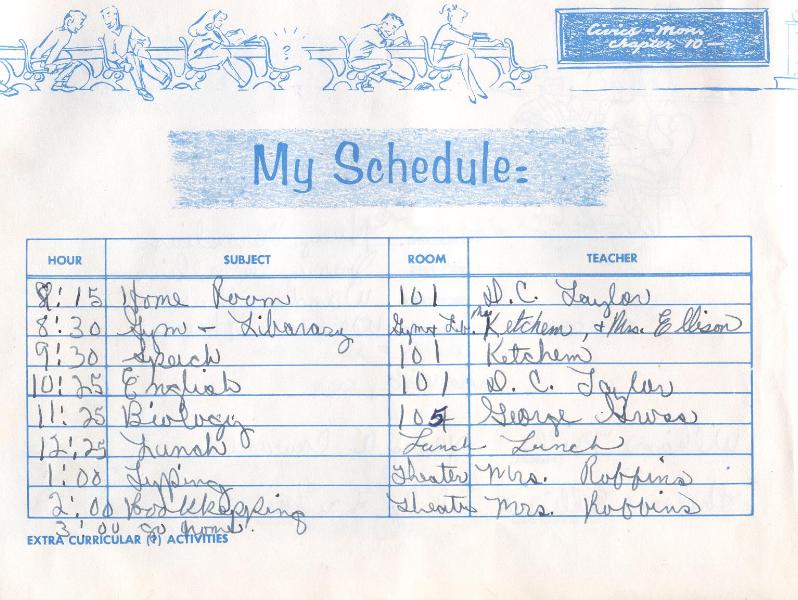 Civics - Mon.
Chapter 10 —
? ?
My Schedule:
HOUR SUBJECT ROOM TEACHER
8:15 Home Room 101 D.C. Taylor
8:30 Gym - Libarary Gym & Lib. Mr. Ketchem, & Mrs. Ellison
9:30 Speich 101 Ketchem
10:25 English 101 D. C. Taylor
11:25 Biology 105 George Gross
12:25 Lunch Lunch Lunch
1:00 Typing Theater Mrs. Robbins
2:00 Bookkepping Theater Mrs. Robbins
3:00 go home.
EXTRA CURRICULAR (?) ACTIVITIES